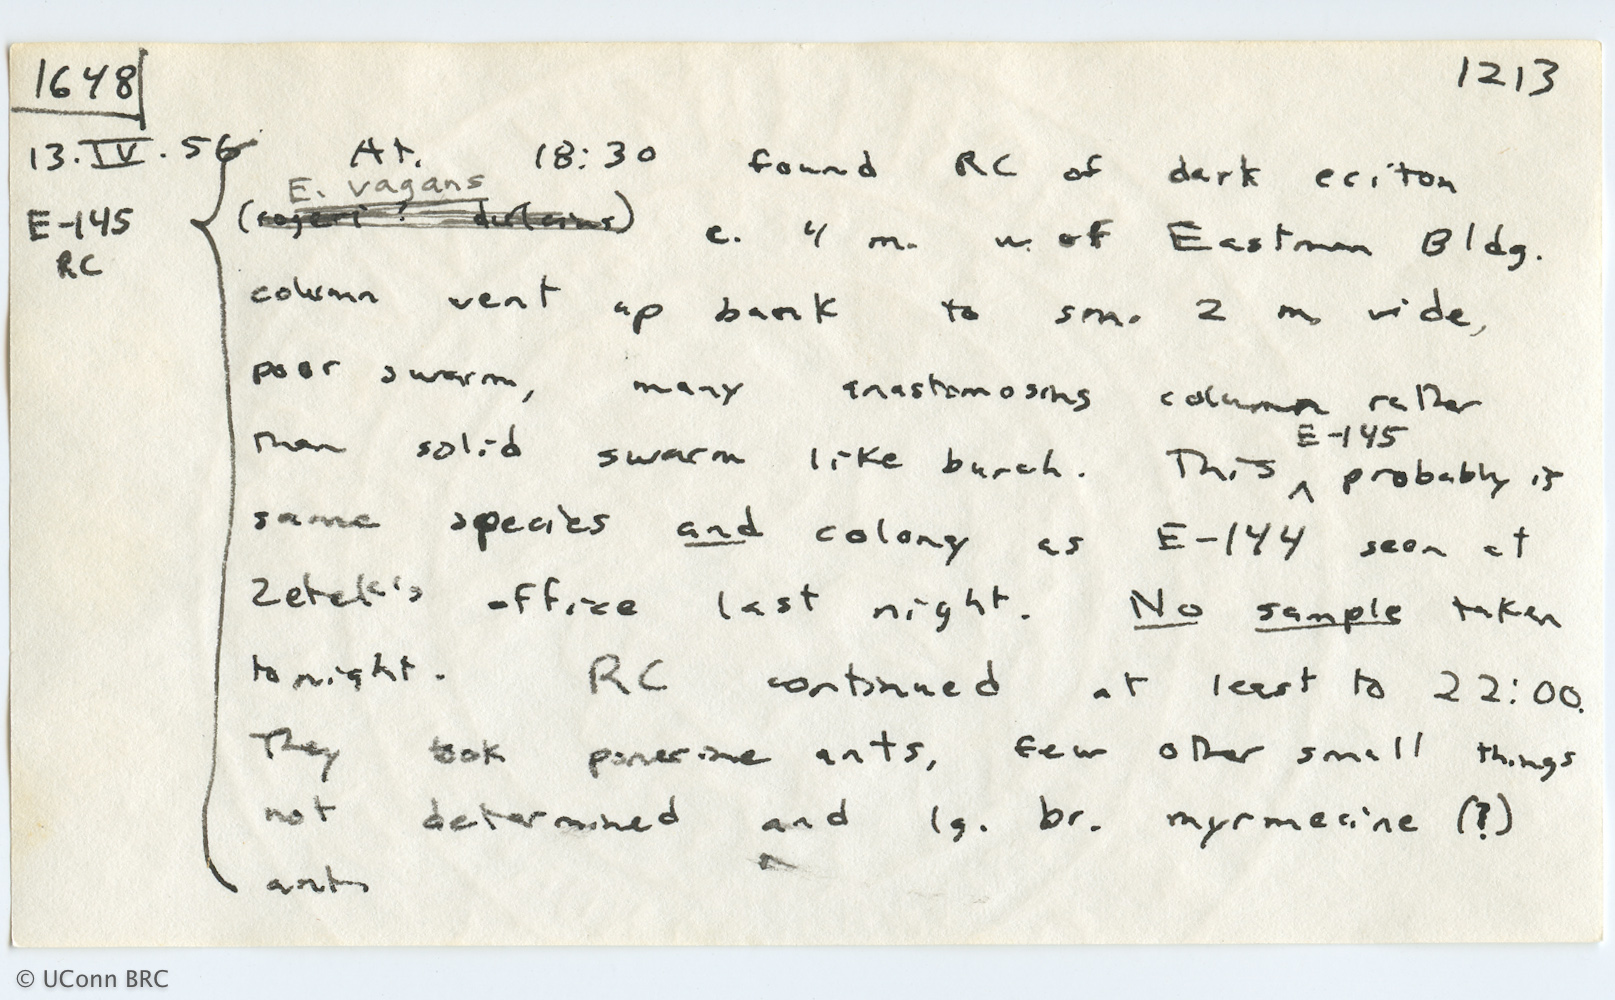 1648 1213
13.IV.56 At. 18:30 found RC of dark eciton
E. vagans
E-145 ( ) c. 4 m. w. of Eastman Bldg.
RC
column went up bank to sm. 2 m. wide,
poor swarm, many anastomosing column rather
than solid swarm like burch. This E-145 probably is
same species and colony as E-144 seen at
Zetek's office last night. No sample taken
tonight. RC continued at least to 22:00.
They took ponerine ants, few other small things
not determined and lg. br. myrmecine (?)
ants
© UConn BRC